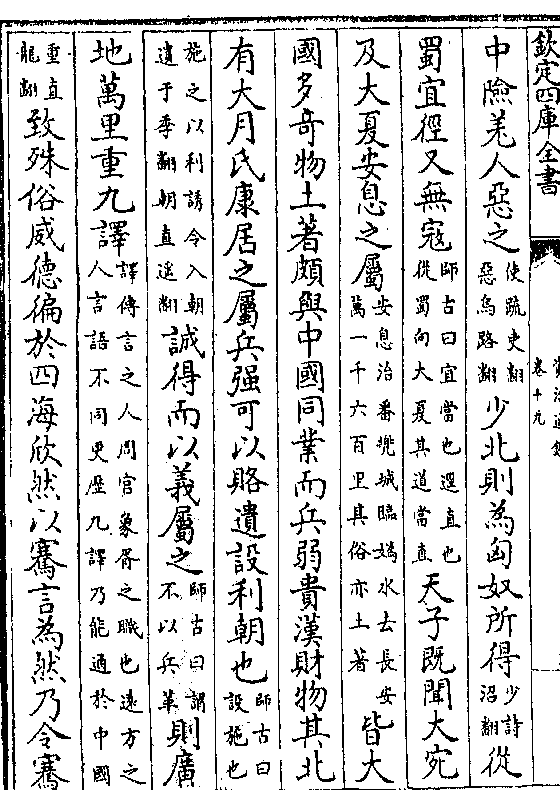 欽定四庫全書
資治通鑑
卷十九
中險羌人惡之使疏吏翻惡烏路翻少北則為匈奴所得少詩沼翻從
蜀宜徑又無寇師古曰宜當也逕直也從蜀向大夏其道當直天子既聞大宛
及大夏安息之屬安息治番兜城臨媯水去長安萬一千六百里其俗亦土著皆大
國多奇物土著頗與中國同業而兵弱貴漢財物其北
有大月氏康居之屬兵强可以賂遺設利朝也師古曰設施也
施之以利誘令入朝遺于季翻朝直遥翻誠得而以義屬之師古曰謂不以兵革則廣
地萬里重九譯譯傳言之人周官象胥之職也遠方之人言語不同更歷九譯乃能通於中國
重直龍翻致殊俗威德徧於四海欣然以騫言為然乃令騫